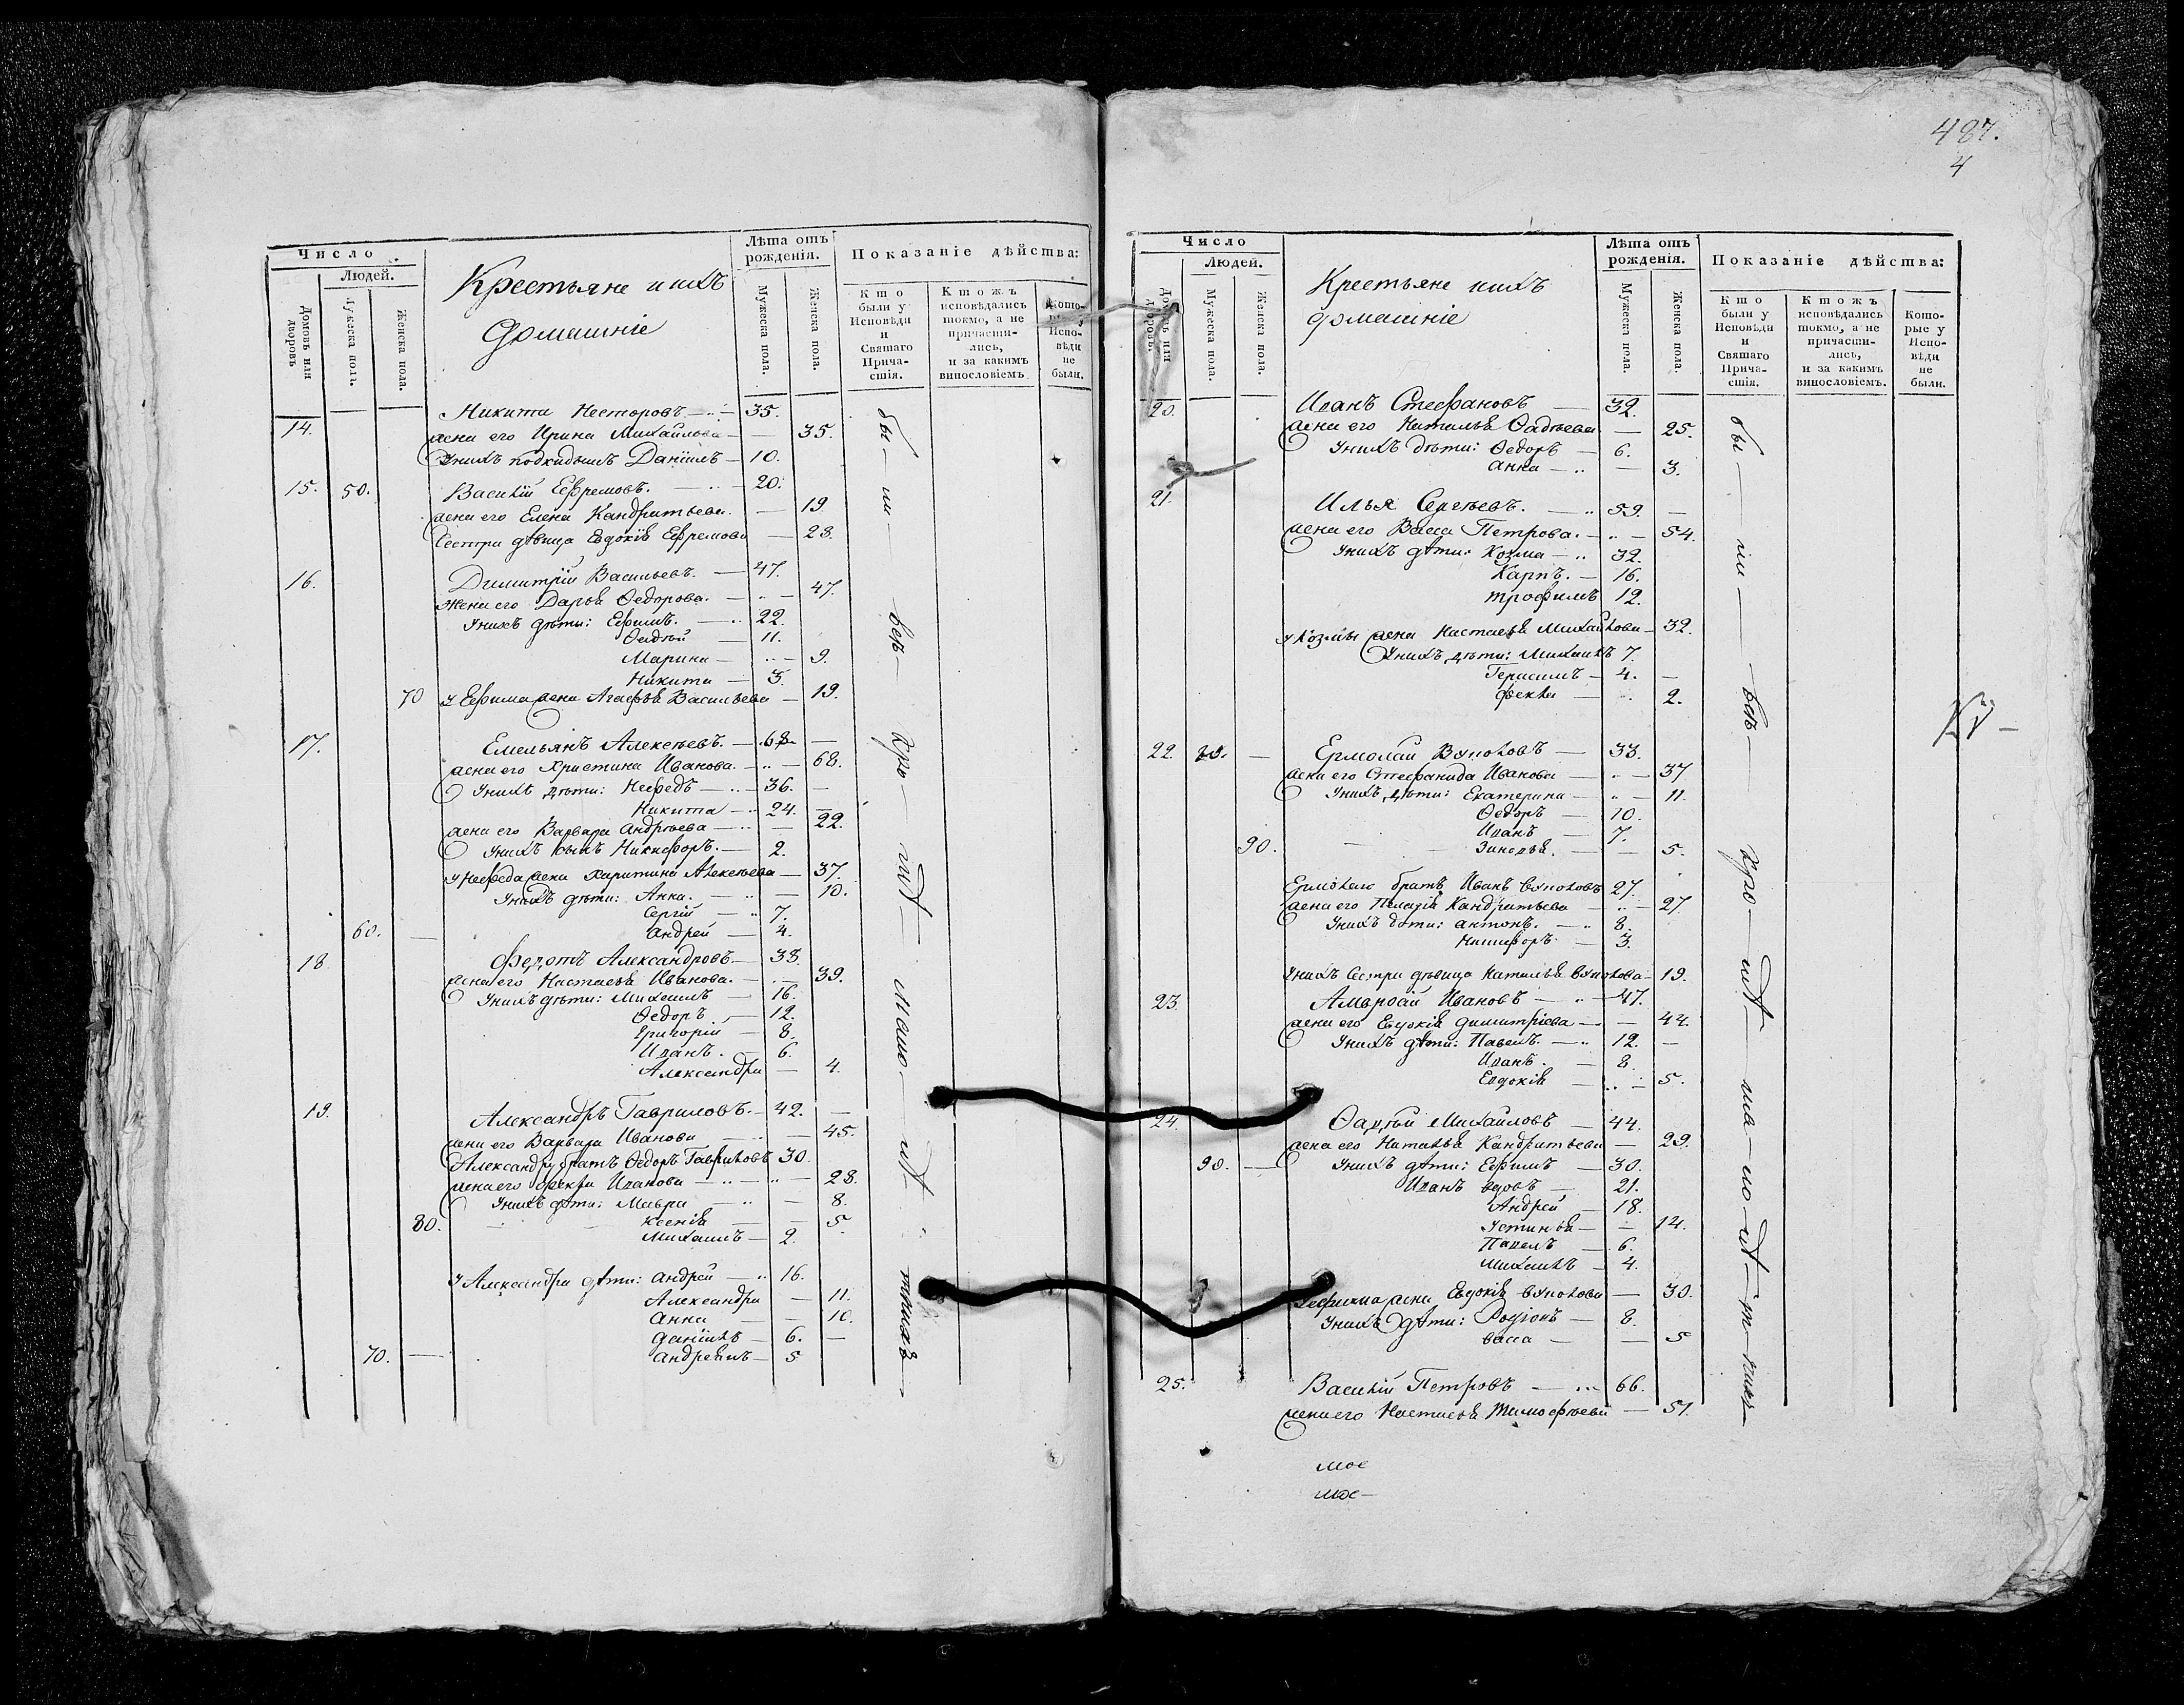 Число
Людей.
Домовъ или дворовъ
Мужеска пола.
Женска пола.
Крестьяне и ихъ
домашніе
Лѣта отъ рожденія.
Мужеска пола.
Женска пола.
Показаніе дѣйства:
Кто были у Исповѣди и Святаго Прича-стія.
Ктожъ исповѣдались токмо, а не причасти-лись, и за какимъ винословіемъ
Кото-рые у Испо-вѣди не были.
Никита Несторовъ — 35.
14. жена его Ирина Михайлова — 35.
Унихъ подкидышъ Даніилъ — 10.
15. 50. Василій Ефремовъ. — 20.
жена его Елена Кандратьева. — 19
Сестра дѣвица Евдокія Ефремова — 23.
16. Димитрій Васильевъ. — 47.
жена его Дарья Ѳедорова. — 47.
Унихъ дѣти: Ефимъ. — 22.
Ѳадѣй — 11.
Марина — 9.
Никита — 3.
70 у Ефима жена Агафья Васильева — 19.
17. Емельянъ Алексѣевъ. — 68. —
жена его Христина Иванова. — 68.
Унихъ дѣти: Нефедъ — 36. —
Никита — 24. —
жена его Варвара Андрѣева — 22.
Унихъ сынъ Никифоръ. — 2.
у Нефеда жена Харитина Алексѣева — 37.
Унихъ дѣти: Анна. — 10.
Сергій — 7.
60. — Андрей — 4.
18 Федотъ Александровъ. — 38.
жена его Настасья Иванова. — 39.
Унихъ дѣти: Михаилъ — 16.
Ѳедоръ. — 12.
Григорій — 8.
Иванъ. — 6.
Александра — 4.
19. Александръ Гавриловъ. — 42. —
жена его Варвара Иванова — 45.
Александру братъ Ѳедоръ Гавриловъ 30.
жена его Фекла Иванова — 28.
Унихъ дѣти: Мавра — 8.
80. Ксенія — 5.
Михаилъ — 2.
у Александра дѣти: Андрей — 16.
Александра — 11.
Анна — 10.
Даніилъ — 6. —
70. — Андреянъ — 5
бы — ли — всѣ —
487.
4
Число
Людей.
Домовъ или дворовъ.
Мужеска пола.
Женска пола.
Крестьяне и ихъ
домашніе
Лѣта отъ рожденія.
Мужеска пола.
Женска пола.
Показаніе дѣйства:
Кто были у Исповѣди и Святаго Прича-стія.
Ктожъ исповѣдались токмо, а не причасти-лись, и за какимъ винословіемъ.
Кото-рые у Испо-вѣди не были.
20. Иванъ Стефановъ — 32.
жена его Наталья Ѳадѣева — 25.
Унихъ дѣти: Ѳедоръ — 6.
Анна — 3.
21. Илья Сергѣевъ. — 59. —
жена его Васса Петрова. — 54.
Унихъ дѣти: Козма — 32.
Карпъ. — 16.
Трофимъ 12.
у Козмы жена Настасья Михайлова — 32.
Унихъ дѣти: Михаилъ 7.
Герасимъ — 4. —
Фекла — 2.
22. — Ермолай — 33.
жена его Стефанида Иванова — 37
Унихъ дѣти: Екатерина — 11.
Ѳедоръ — 10.
Иванъ — 7.
90. Зиновья. — 5.
Ермолаю братъ Иванъ 27.
жена его Пелагія Кандратьева — 27
Унихъ дѣти: Антонъ. — 8.
Никифоръ — 3.
Унихъ Сестра дѣвица Наталья — 19.
23. Амвросій Ивановъ — 47.
жена его Евдокія Димитріева — 44.
Унихъ дѣти: Павелъ. — 12. —
Иванъ. — 8.
Евдокія — 5.
24. Ѳадѣй Михайловъ — 44.
жена его Наталья Кандратьева — 29.
90. — Унихъ дѣти: Ефимъ — 30.
Иванъ вдовъ — 21.
Андрей — 18.
Устинья — 14.
Павелъ — 6.
Михаилъ — 4.
У Ефима жена Евдокія — 30.
Унихъ дѣти: Родіонъ — 8.
Васса — 5
25. Василій Петровъ — 66.
жена его Настасья Тимофѣева — 51.
бы — ли — всѣ —
мое
мое —